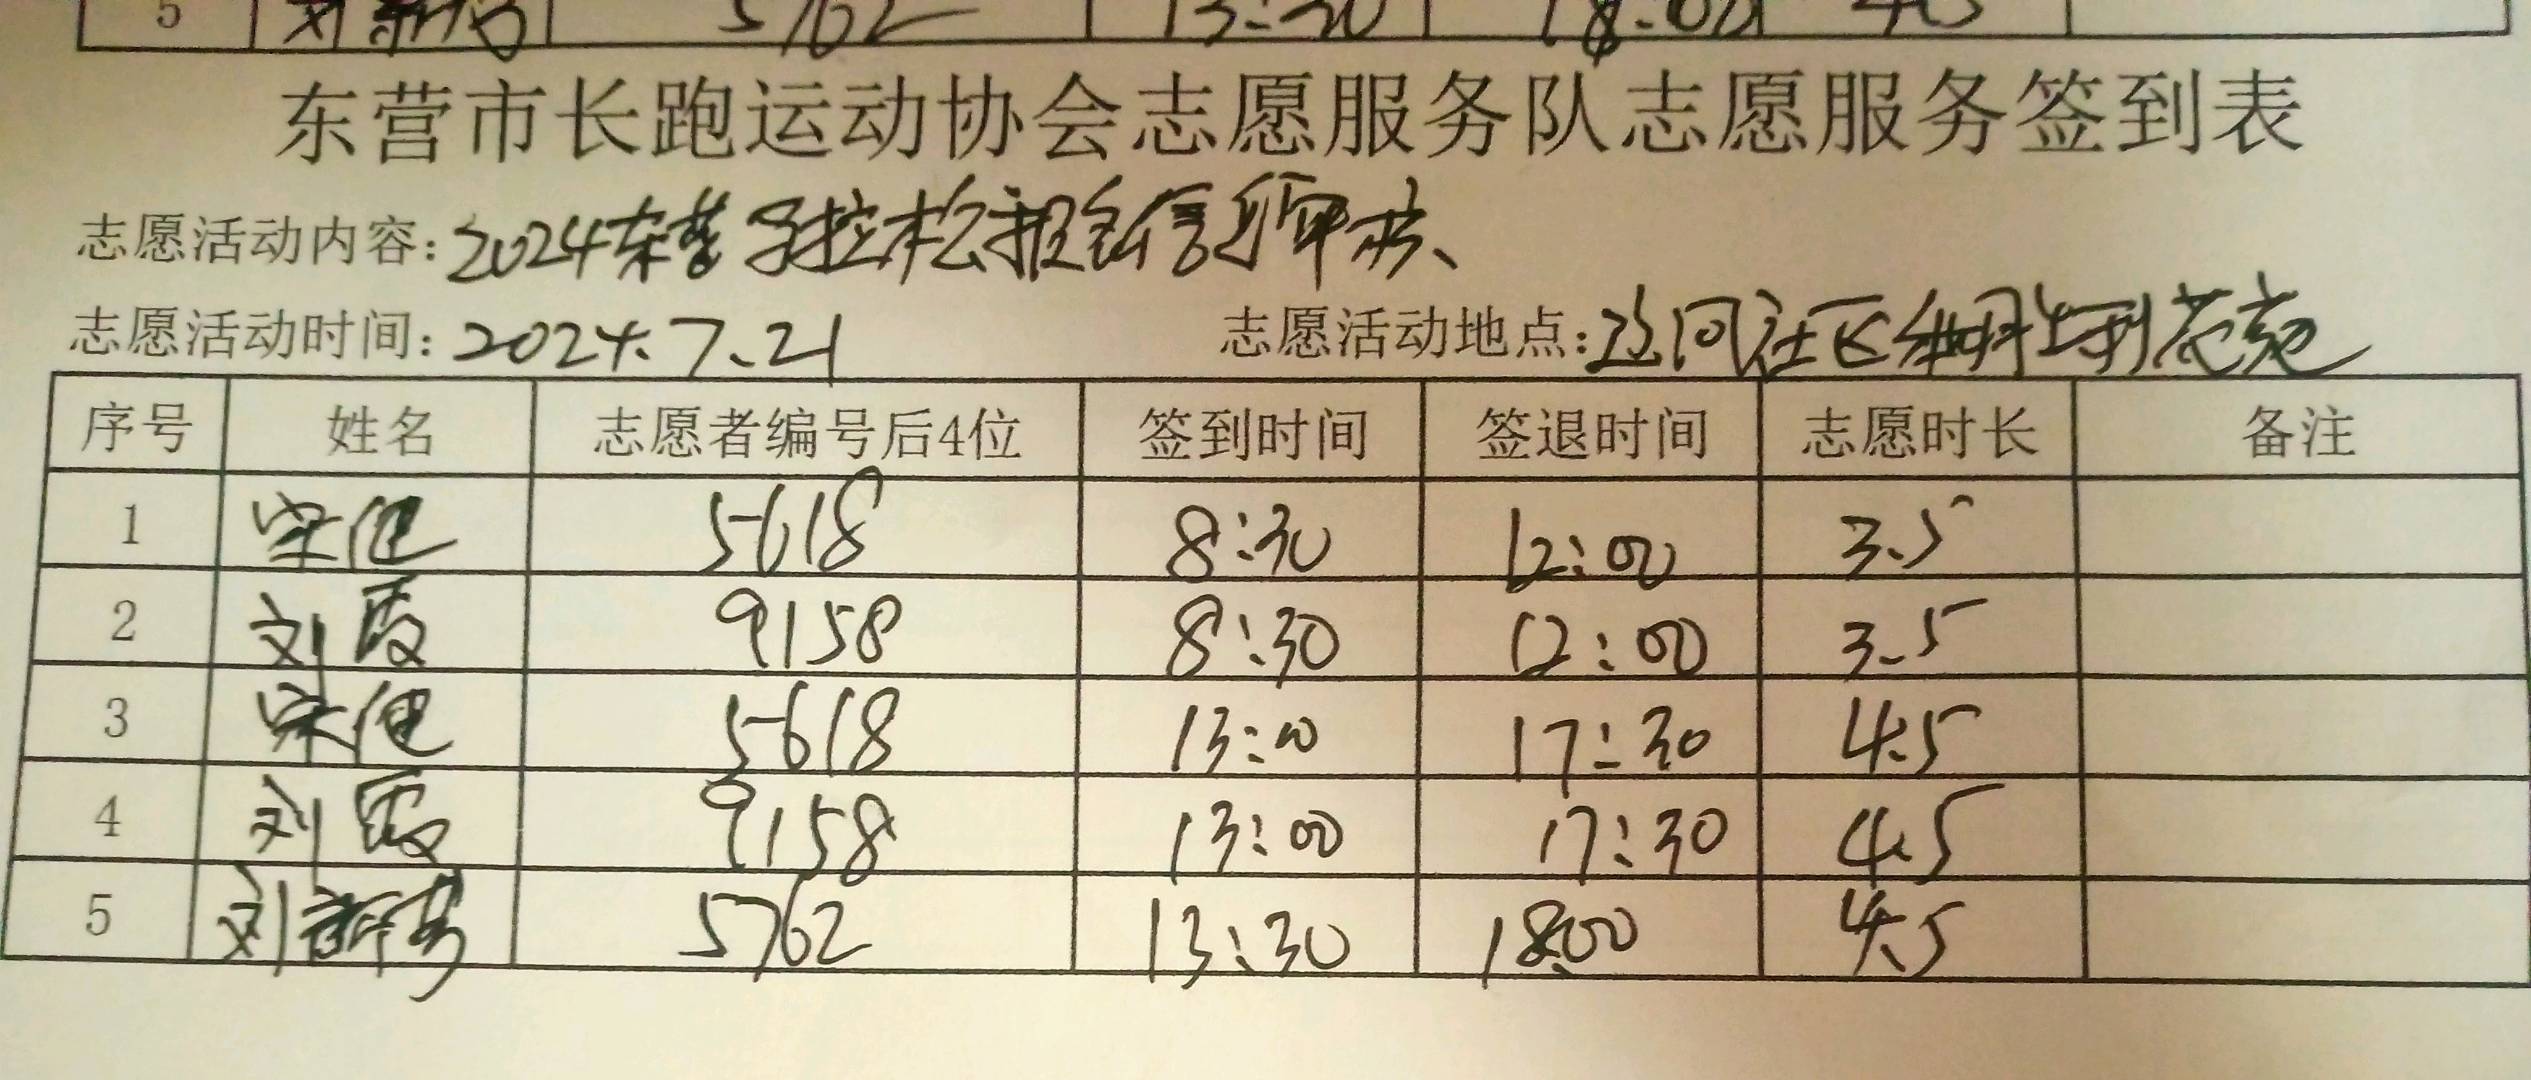 5 刘 5762 13:30 18:00 4.5
东营市长跑运动协会志愿服务队志愿服务签到表
志愿活动内容:2024东营马拉松报名信息审核、
志愿活动时间:2024.7.21 志愿活动地点:社区花苑
序号 姓名 志愿者编号后4位 签到时间 签退时间 志愿时长 备注
1 宋健 5618 8:30 12:00 3.5
2 刘霞 9158 8:30 12:00 3.5
3 宋健 5618 13:00 17:30 4.5
4 刘霞 9158 13:00 17:30 4.5
5 刘新 5762 13:30 18:00 4.5